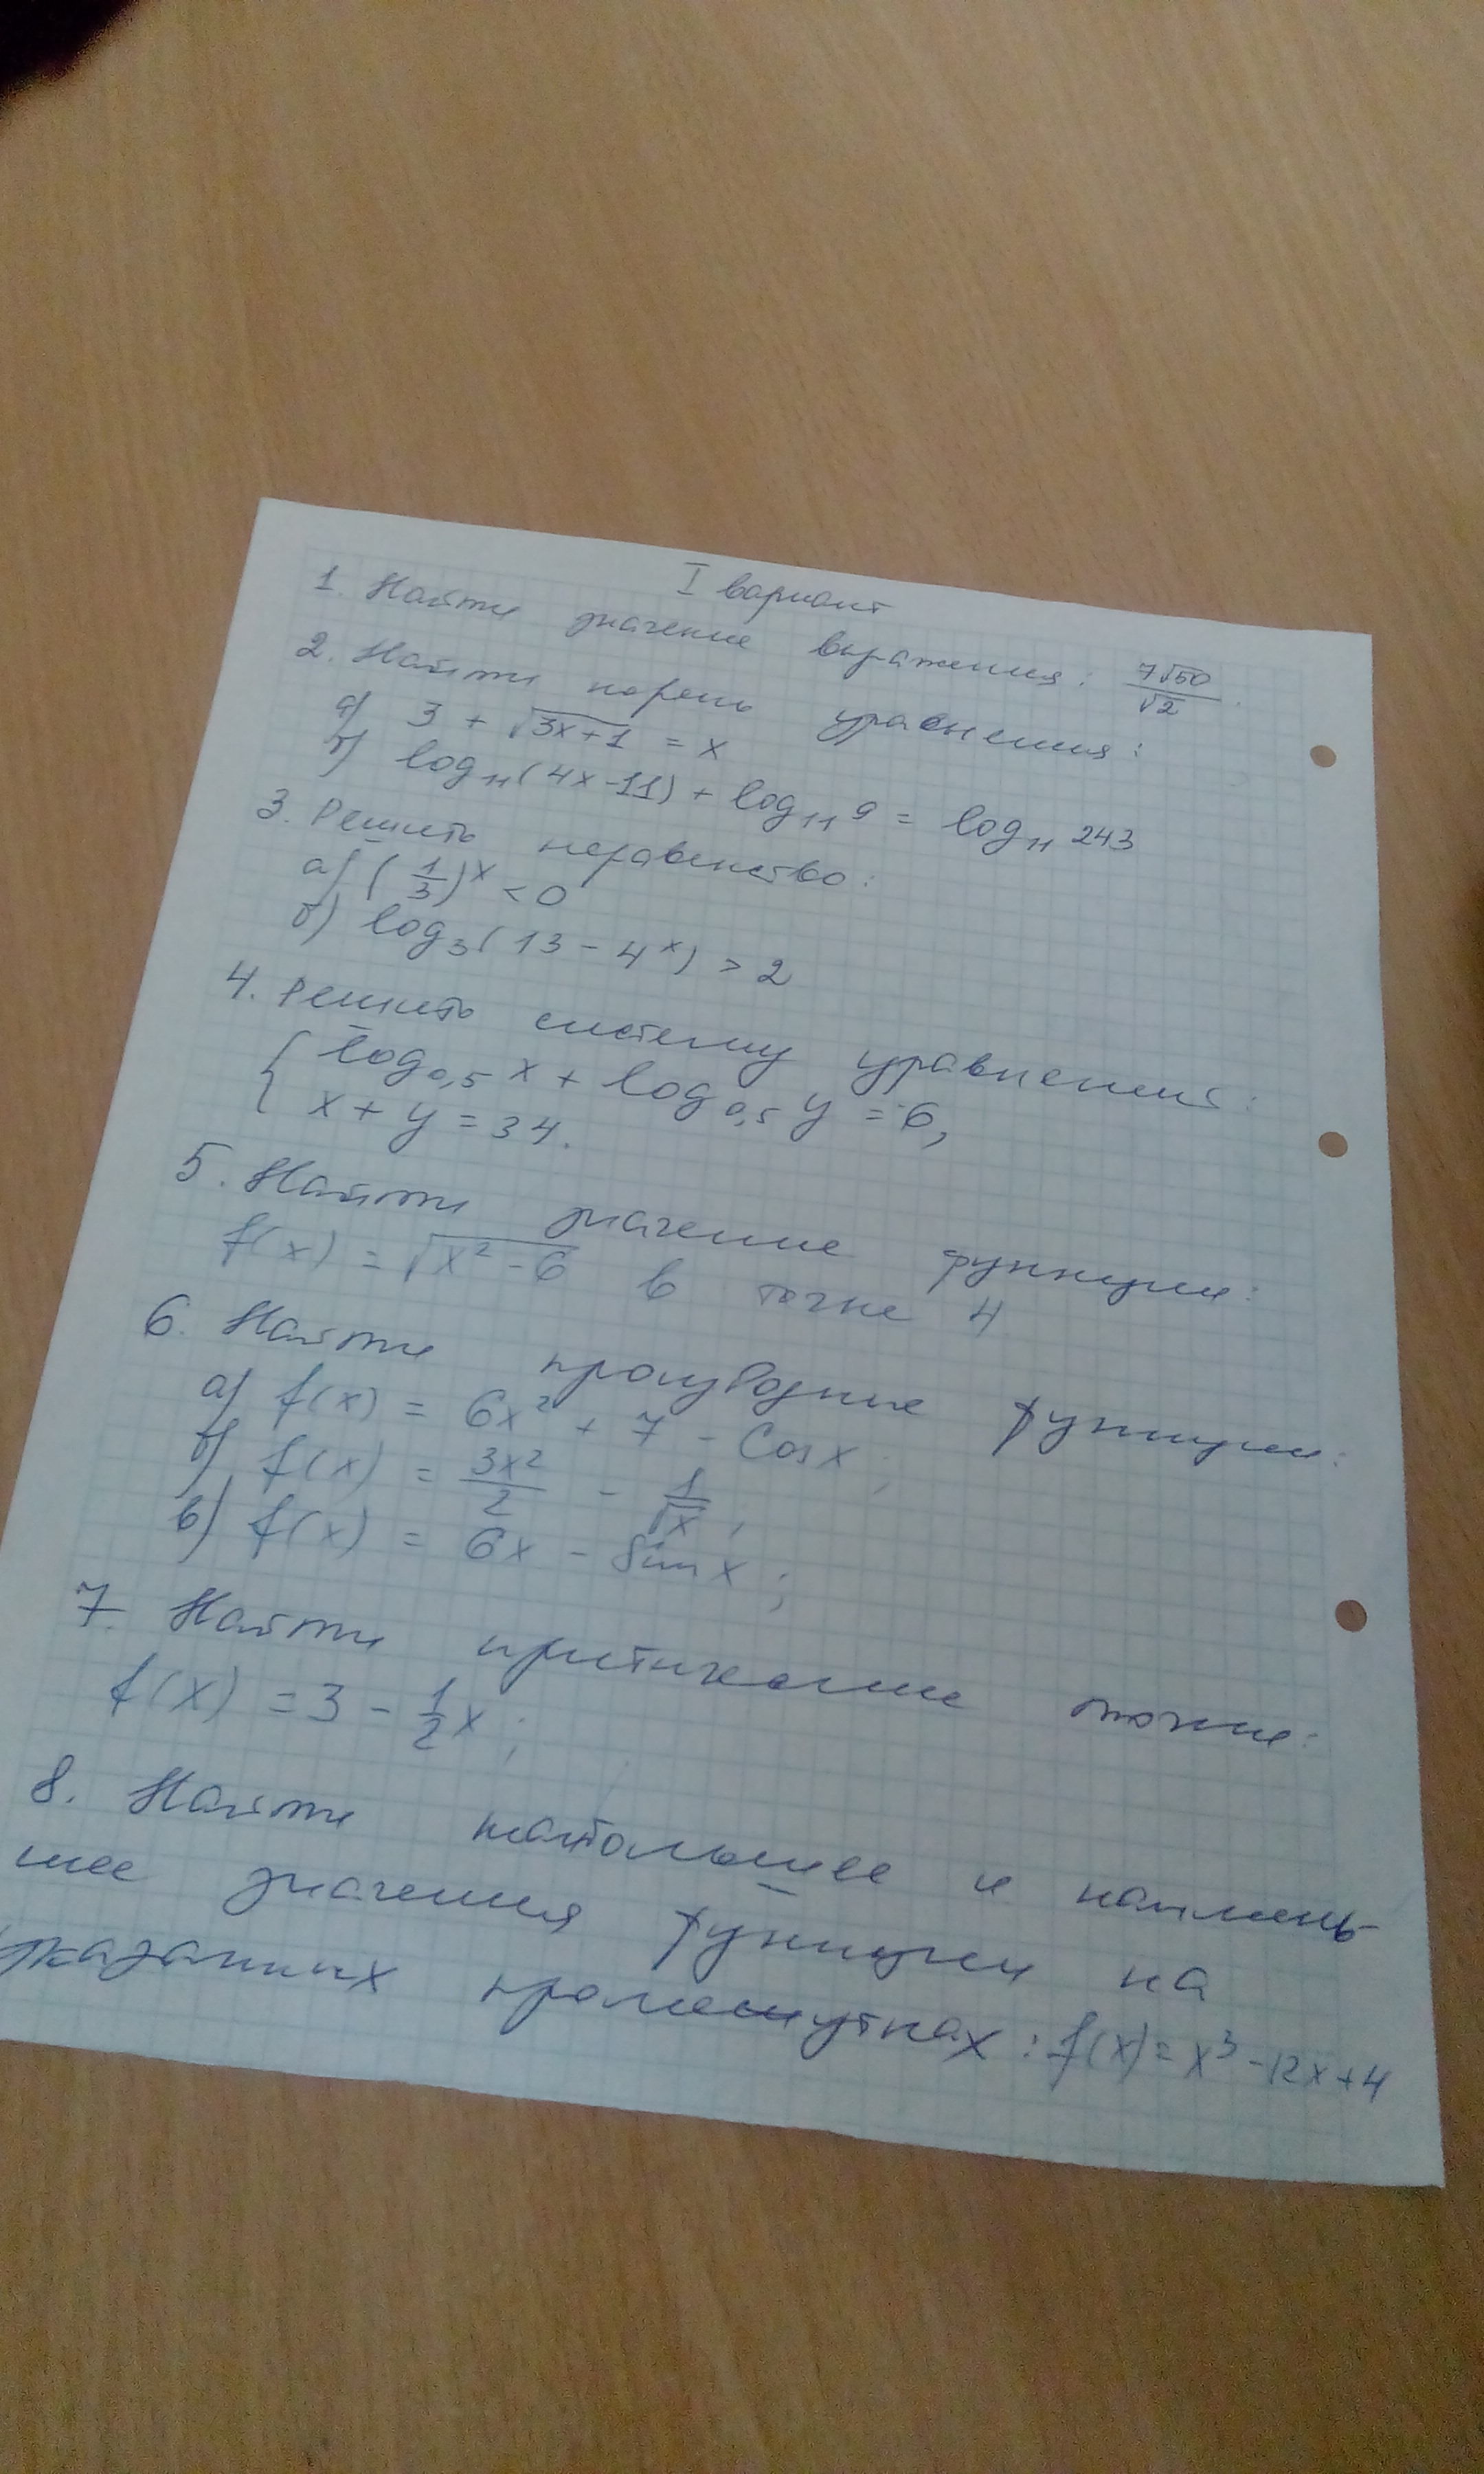 I вариант
1. Найти значение выражения: 7√50/√2.
2. Найти корень уравнения:
а) 3 + √(3x+1) = x
б) log₁₁(4x-11) + log₁₁ 9 = log₁₁ 243
3. Решить неравенство:
а) (1/3)ˣ < 0
б) log₃(13 - 4ˣ) > 2
4. Решить систему уравнений:
{ log₀,₅ x + log₀,₅ y = -6,
x + y = 34.
5. Найти значение функции:
f(x) = √(x² - 6) в точке 4
6. Найти производные функции:
а) f(x) = 6x² + 7 - cos x;
б) f(x) = 3x²/2 - 1/√x;
в) f(x) = 6x - sin x;
7. Найти критические точки:
f(x) = 3 - 1/2 x;
8. Найти наибольшее и наимень-
шее значения функции на
указанных промежутках: f(x) = x³ - 12x + 4